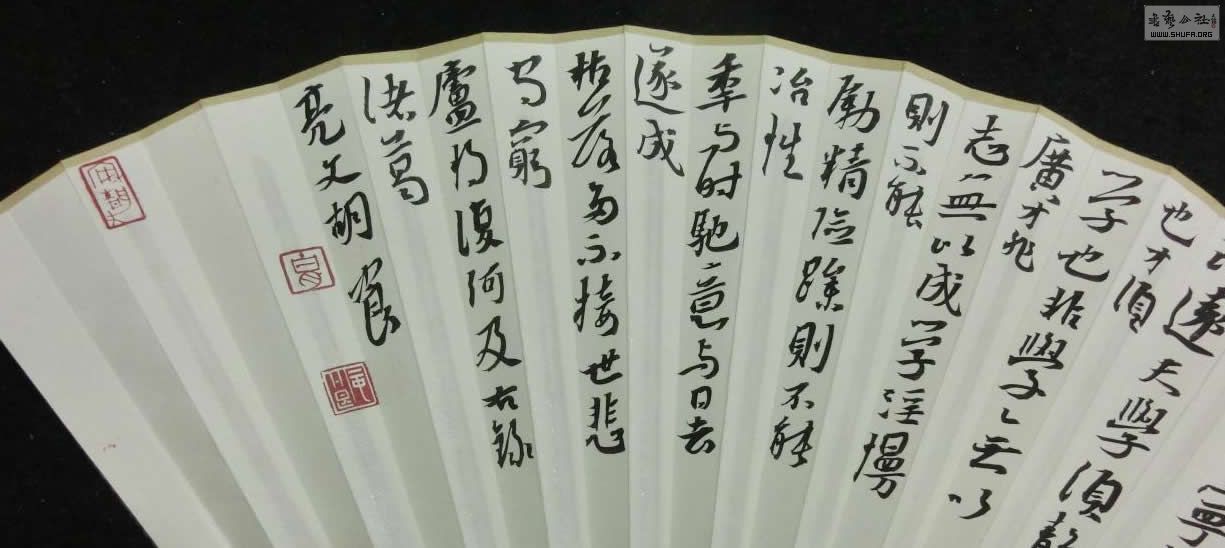 寧
遠夫學須靜
也才須
学也非學〻无以
廣才非
志無以成学淫慢
則不能
勵精險躁則不能
冶性
季与时馳意与日去
遂成
枯落多不接世悲
守窮
廬将復何及右錄
诸葛
亮文胡
书艺公社
WWW.SHUFA.ORG